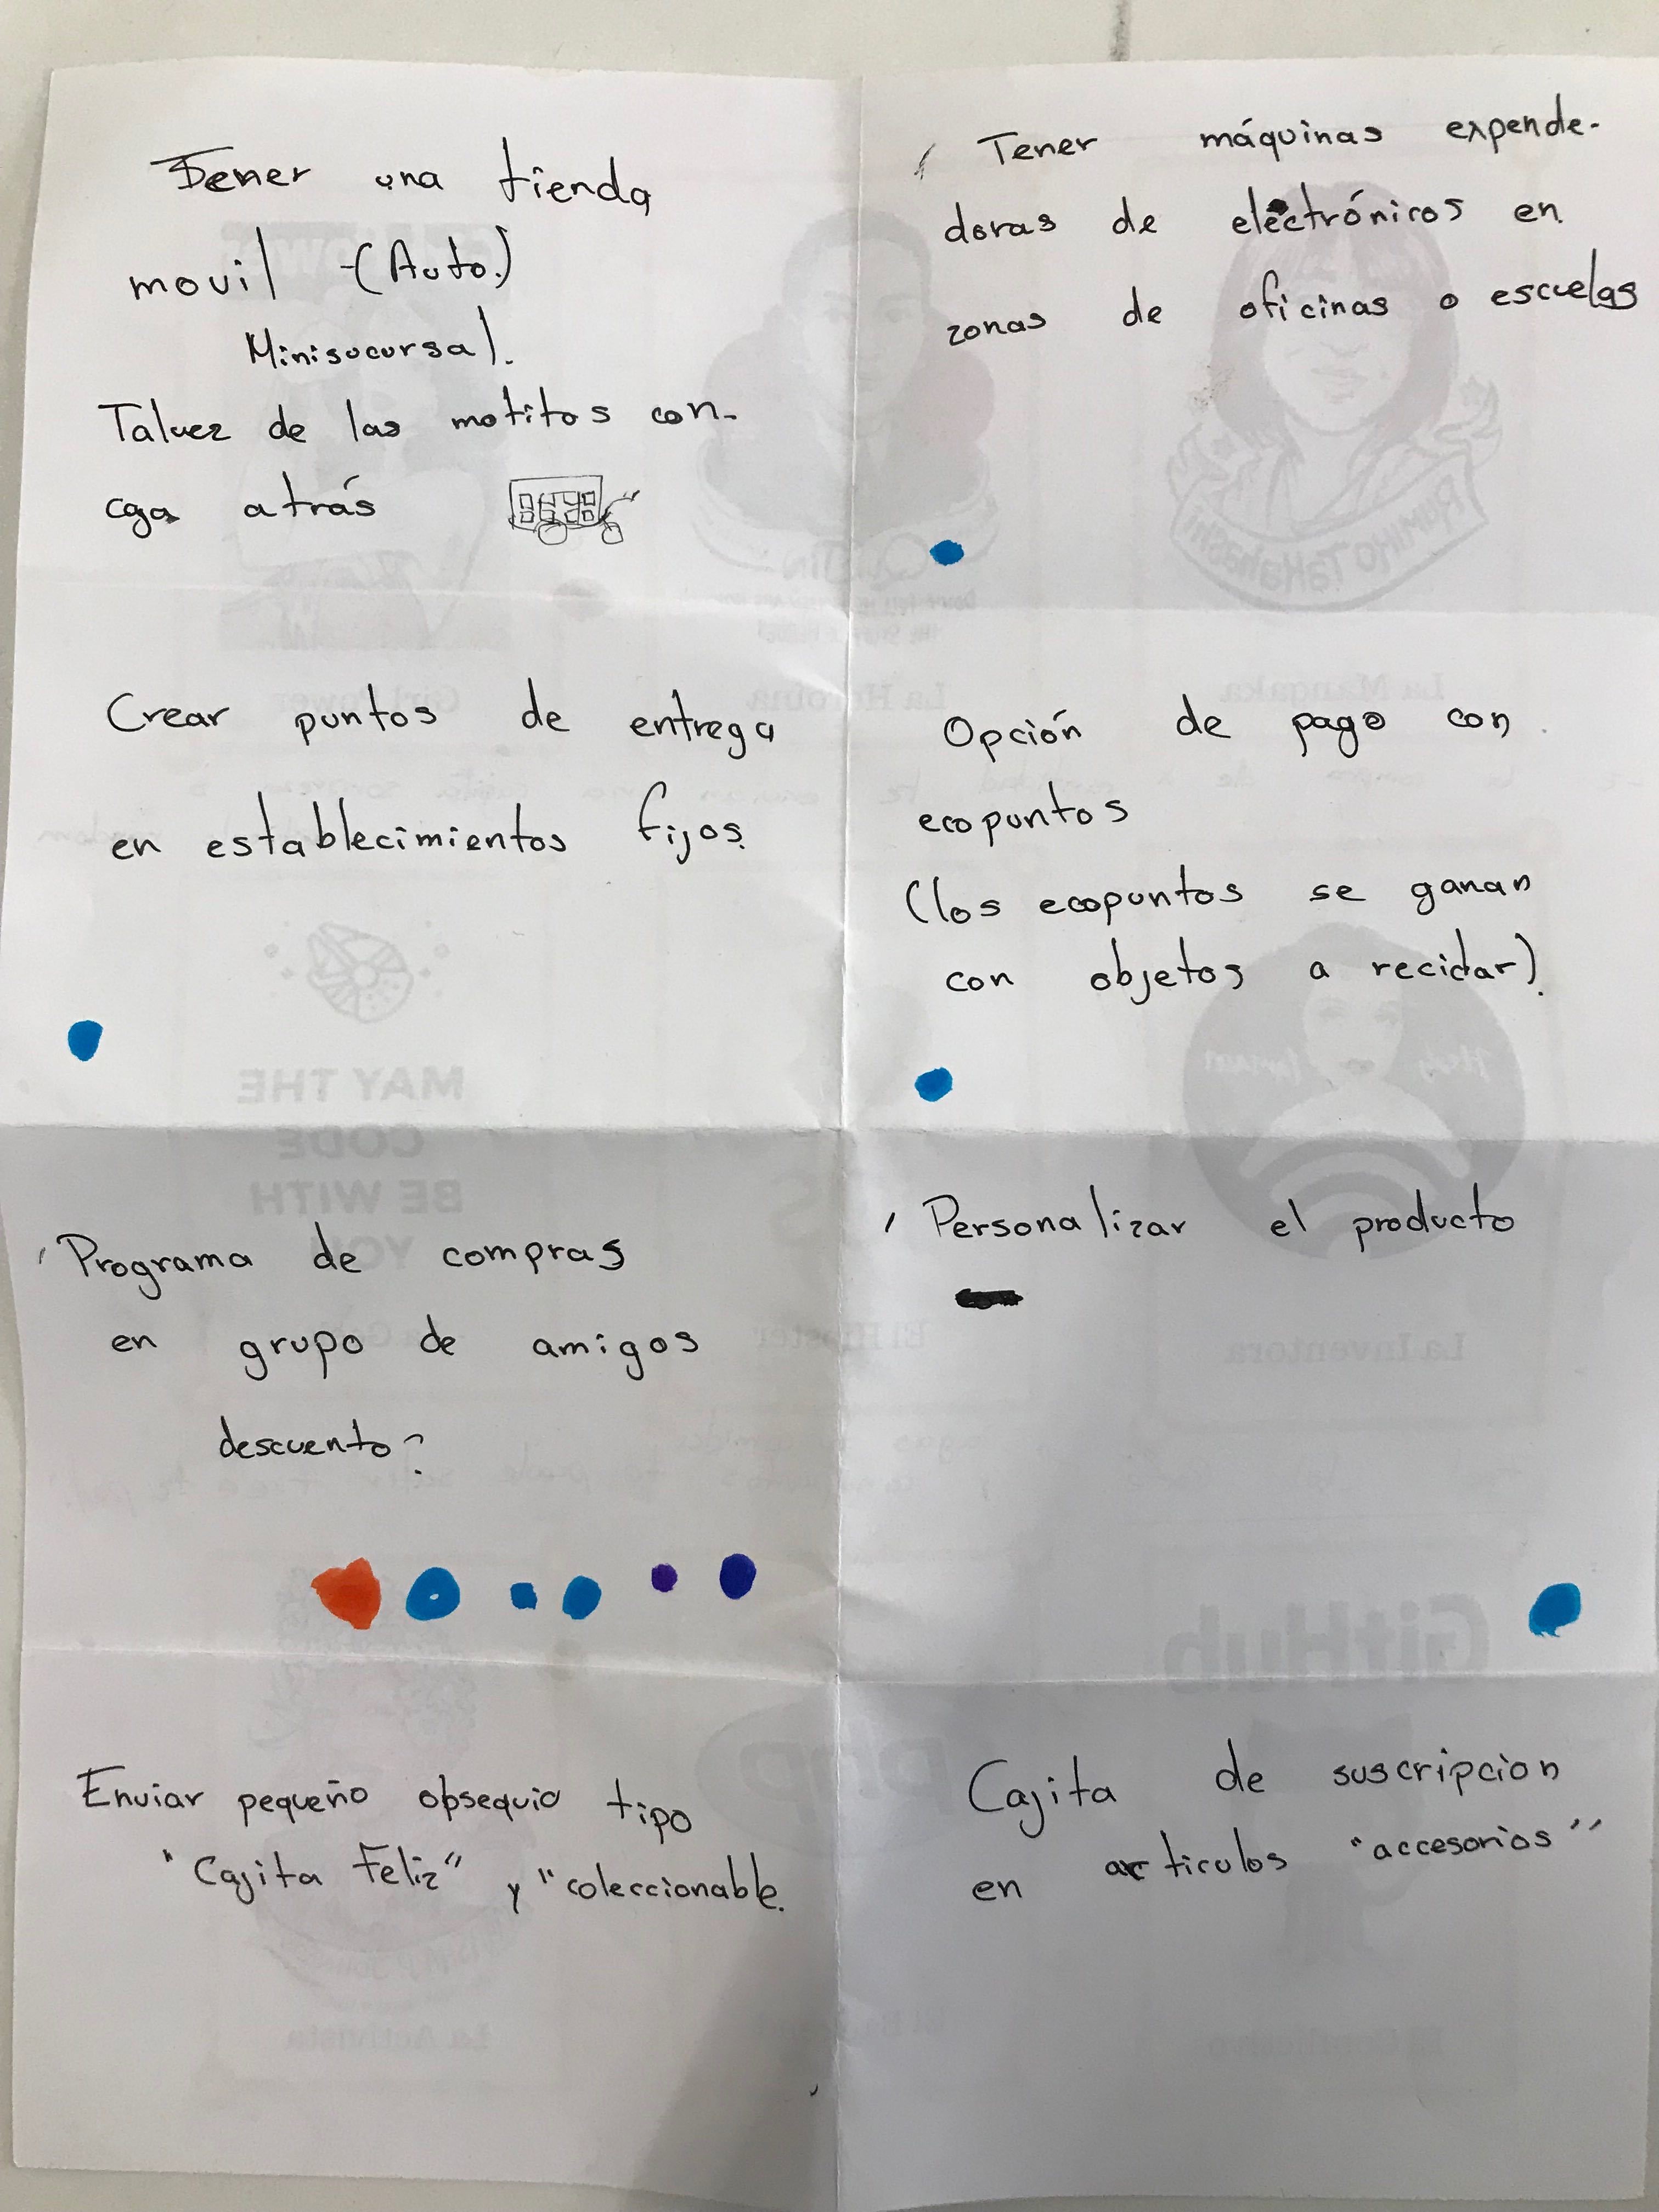 Tener una tienda
movil -(Auto.)
Minisucursal.
Talvez de las motitos con-
cga atrás
Tener máquinas expende-
doras de electrónicos en
zonas de oficinas o escuelas
Crear puntos de entrega
en establecimientos fijos.
Opción de pago con
ecopuntos
(los ecopuntos se ganan
con objetos a reciclar).
Programa de compras
en grupo de amigos
descuento?
Personalizar el producto
Enviar pequeño obsequio tipo
"Cajita Feliz" y "coleccionable.
Cajita de suscripcion
en articulos "accesorios"
RUMIKO TAKAHASHI
La Mangaka
La Heroína
Girl Power
MAY THE
CODE
BE WITH
YOU
La Inventora
GitHub
La Activista